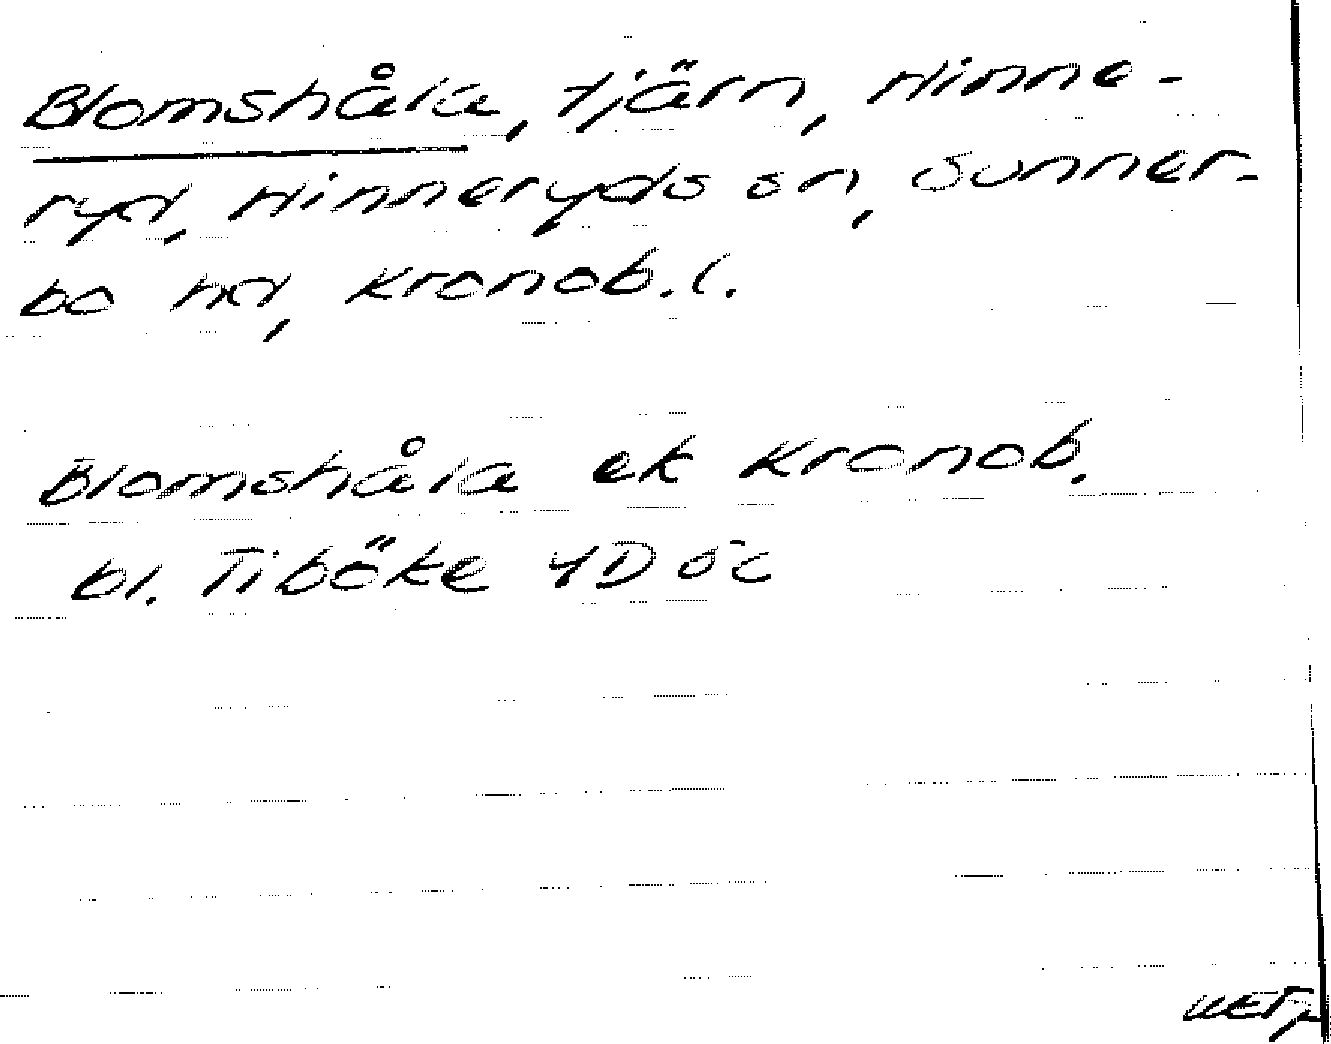 Blomshåla, tjärn, Hinne-
ryd, Hinneryds sn, Sunner-
bo hd, Kronob. l.
Blomshåla ek Kronob.
bl. Tiböke 4D öc